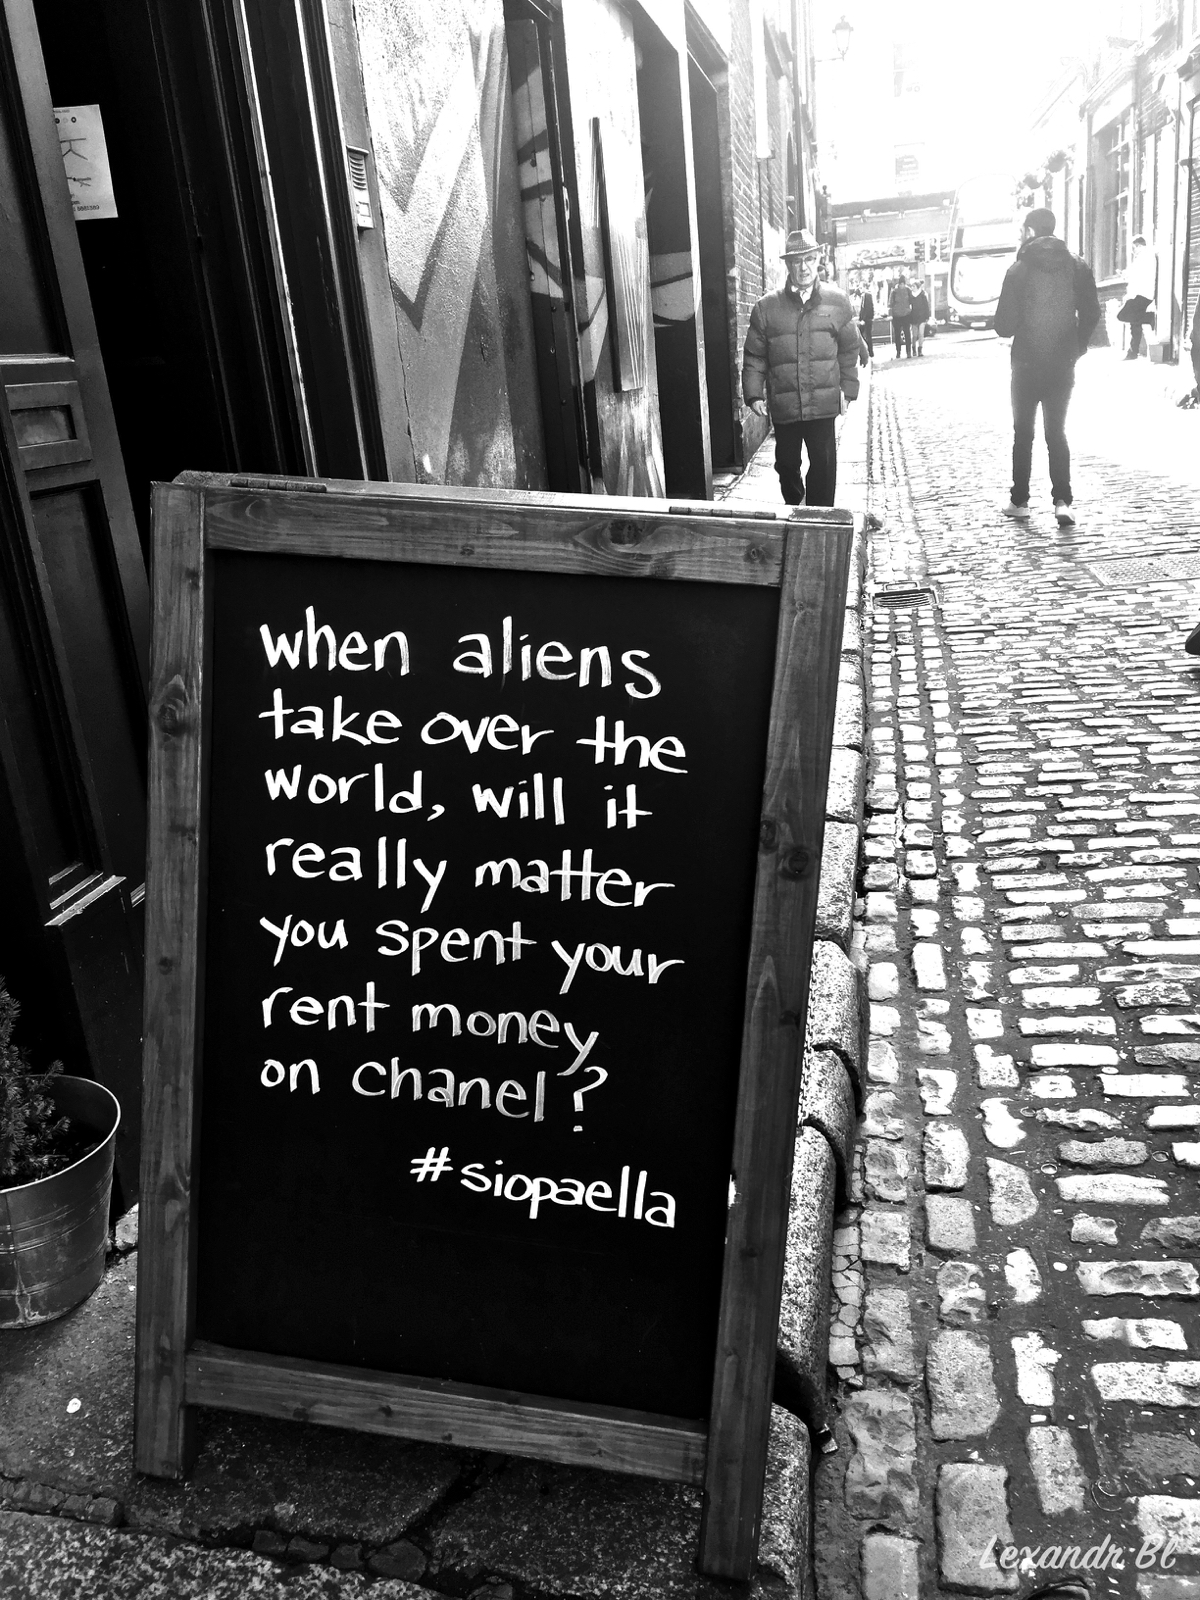 when aliens
take over the
world, will it
really matter
you spent your
rent money
on chanel?
#siopaella
Lexandr Bl